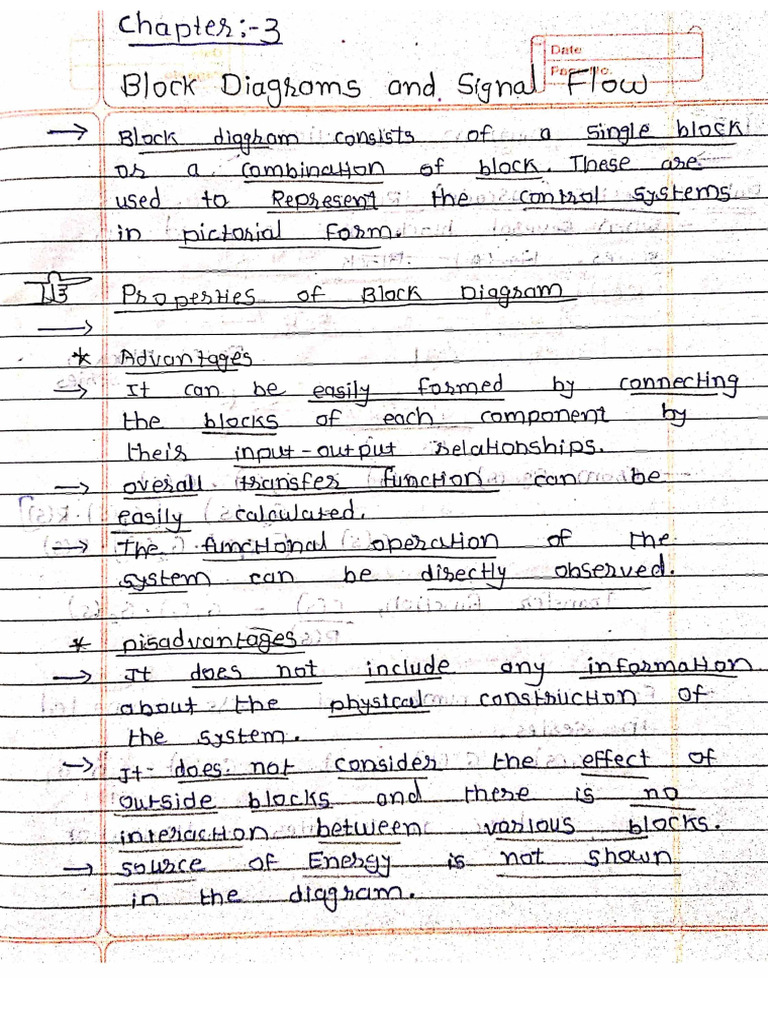 Chapter:-3
Date
Page No.
Block Diagrams and Signal Flow
→ Block diagram consists of a single block
or a combination of block. These are
used to Represent the control systems
in pictorial form.
Properties of Block Diagram
→
* Advantages
→ It can be easily formed by connecting
the blocks of each component by
their input-output relationships.
→ overall transfer function can be
easily calculated.
→ The functional operation of the
system can be directly observed.
* Disadvantages
→ It does not include any information
about the physical construction of
the system.
→ It does not consider the effect of
outside blocks and there is no
interaction between various blocks.
→ source of Energy is not shown
in the diagram.